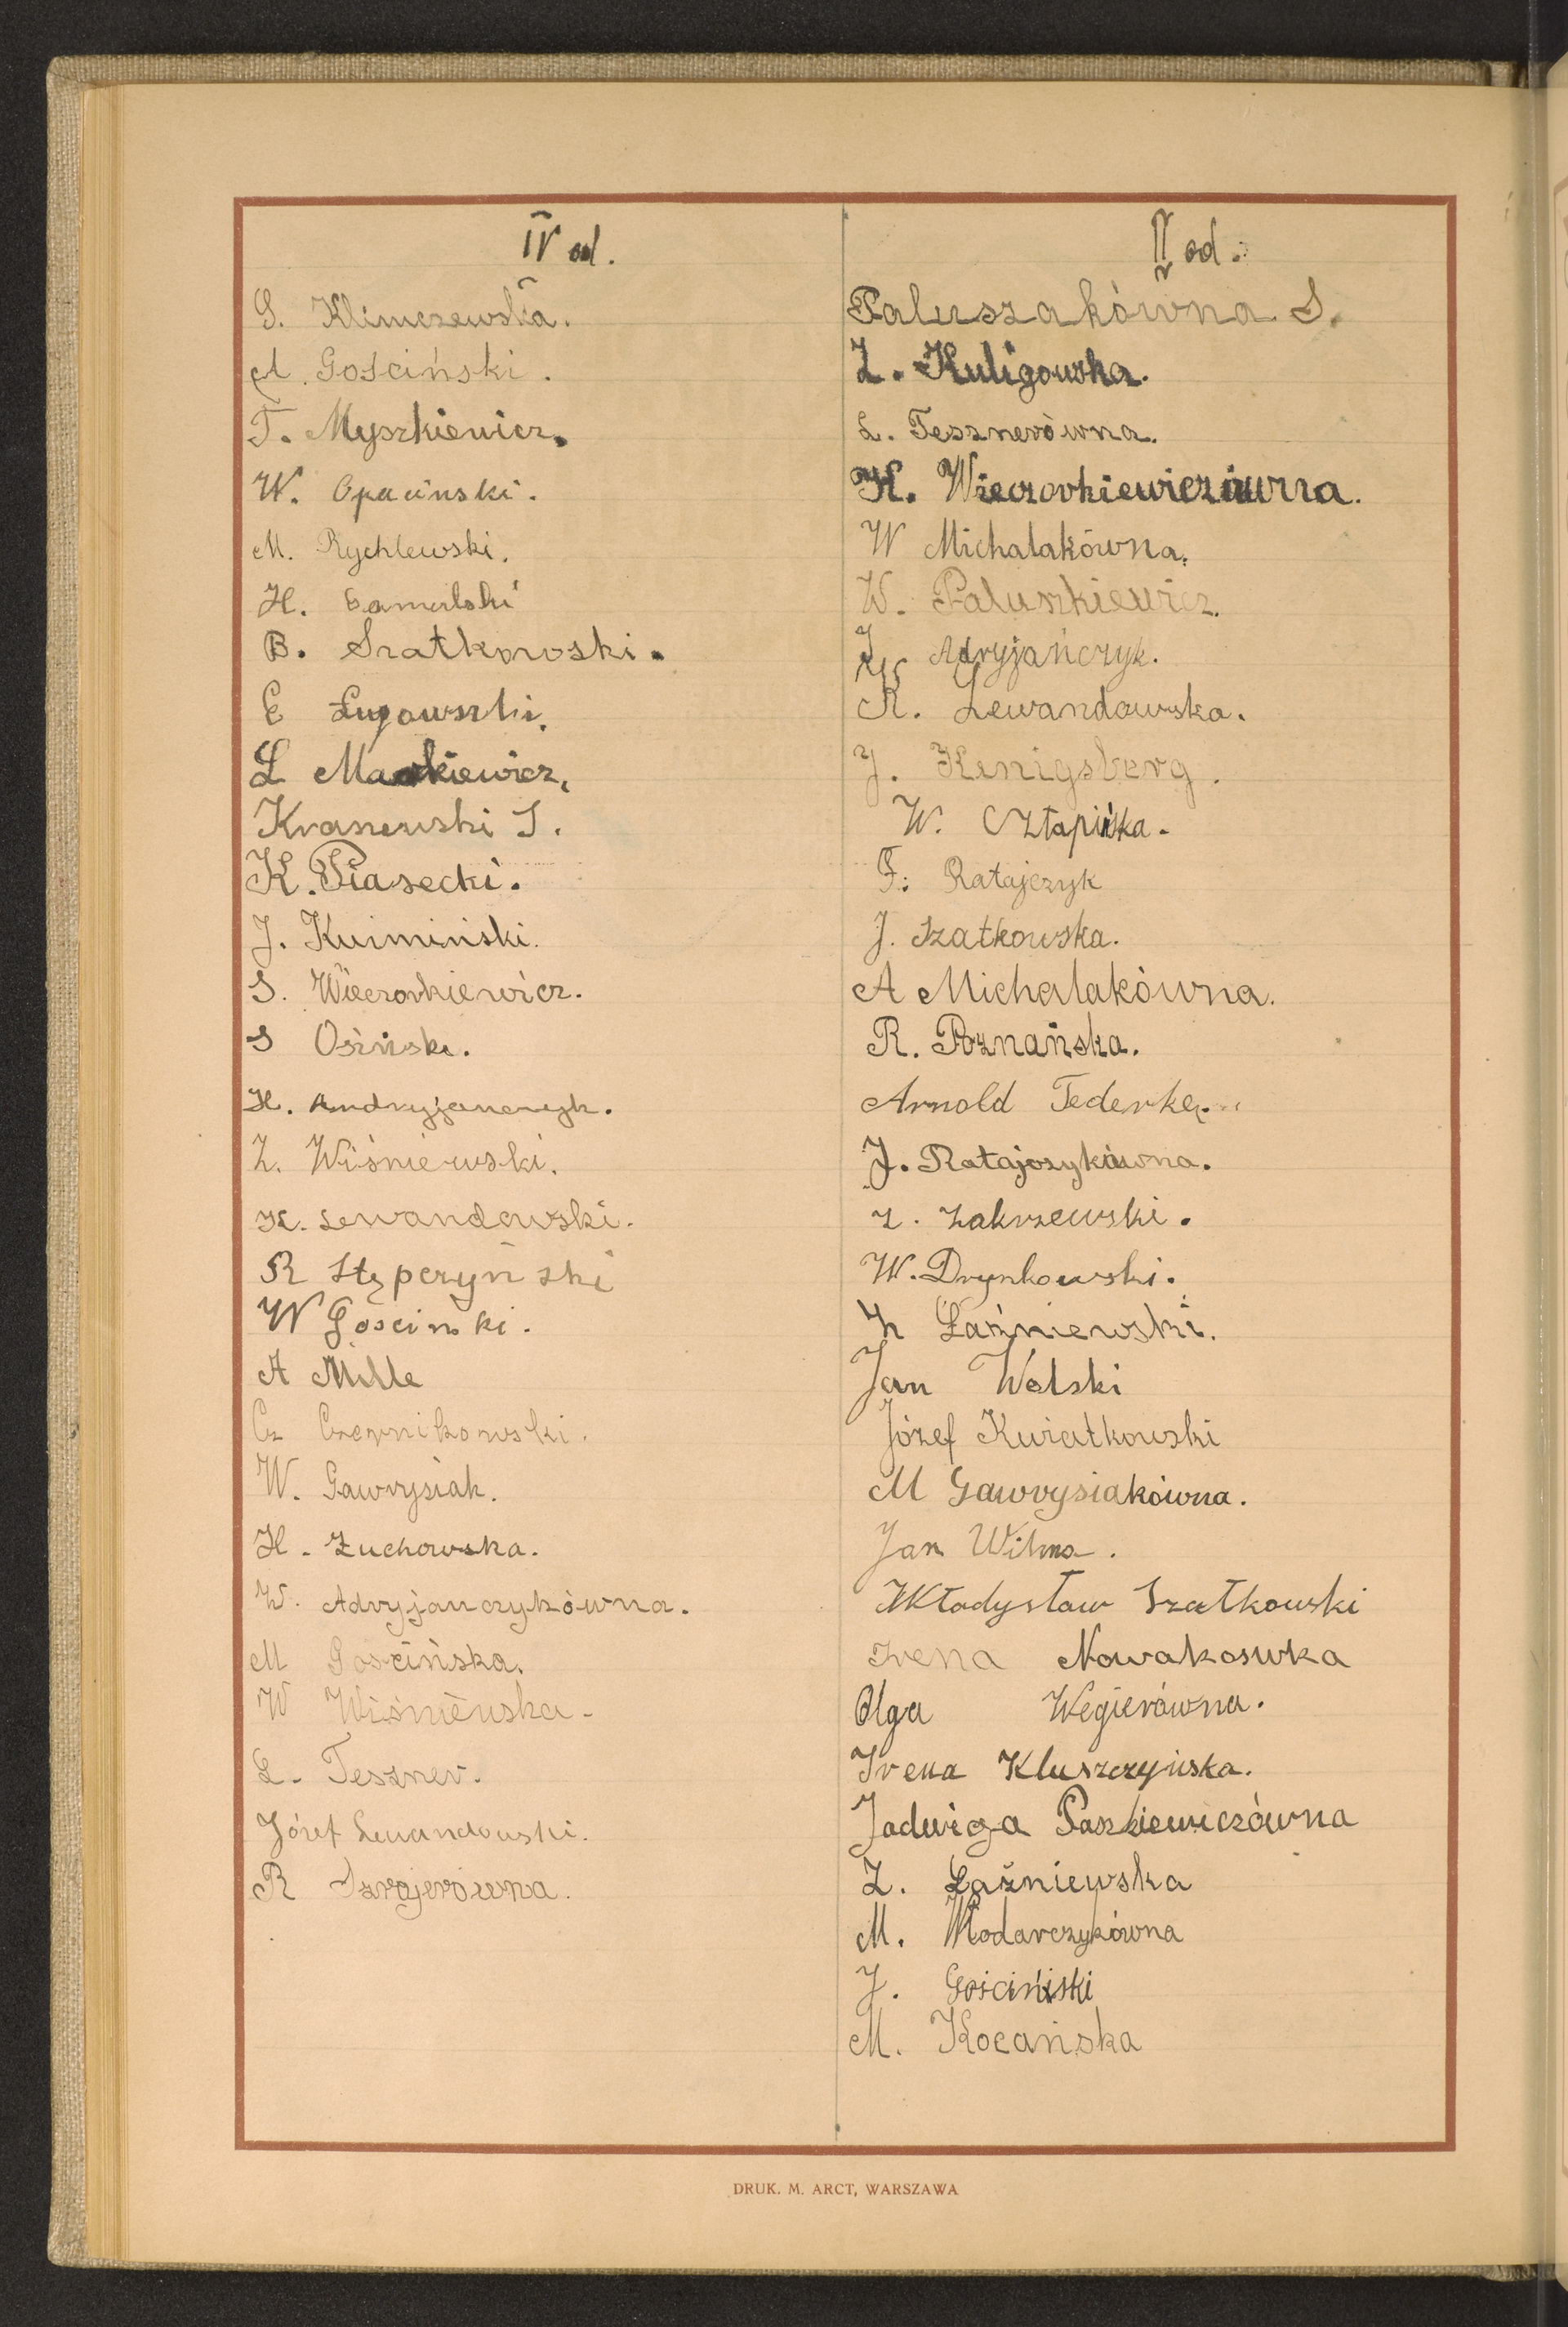 IV od.
S. Klimczewska.
A. Gościński.
T. Myszkiewicz.
W. Opaciński.
M. Rychlewski.
H. Gamalski
B. Szatkowski.
EŁugowski.
L Mackiewicz.
Kraszewski S.
K. Piasecki.
J. Kuimiński.
S. Wieczorkiewicz.
S Osiński.
H. Andryjanczyk.
Z. Wiśniewski.
K. Lewandowski.
R Stępczyński
W Gościnki.
A Mille
Cz Czernikowski.
W. Gawrysiak.
H. Żuchowska.
W. Adryjanczykówna.
M Gościńska.
W Wiśniewska.
L. Teszner.
Józef Lewandowski.
R Szrajerówna.
II od.
Paluszakówna S.
Z. Kuligowska.
L. Tesznerówna.
H. Wieczorkiewiczówna.
W Michalakówna.
W. Paluszkiewicz.
J Adryjańczyk.
R. Lewandowska.
J. Kenigsberg.
W. Człapińska.
F. Ratajczyk
J. Szatkowska.
A Michalakówna.
R. Poznańska.
Arnold Federke.
J. Ratajczykówna.
Z. Zakrzewski.
W. Drynkowski.
Z Łaźniewski.
Jan Wolski
Józef Kwiatkowski
M Gawrysiakówna.
Jan Wilma.
Władysław Szatkowski
Irena Nowakoswka
Olga Wegierówna.
Irena Kluszczyńska.
Jadwiga Paszkiewiczówna
Z. Łaźniewska
M. Włodarczykówna
J. Gościński
M. Kocańska
DRUK. M. ARCT, WARSZAWA